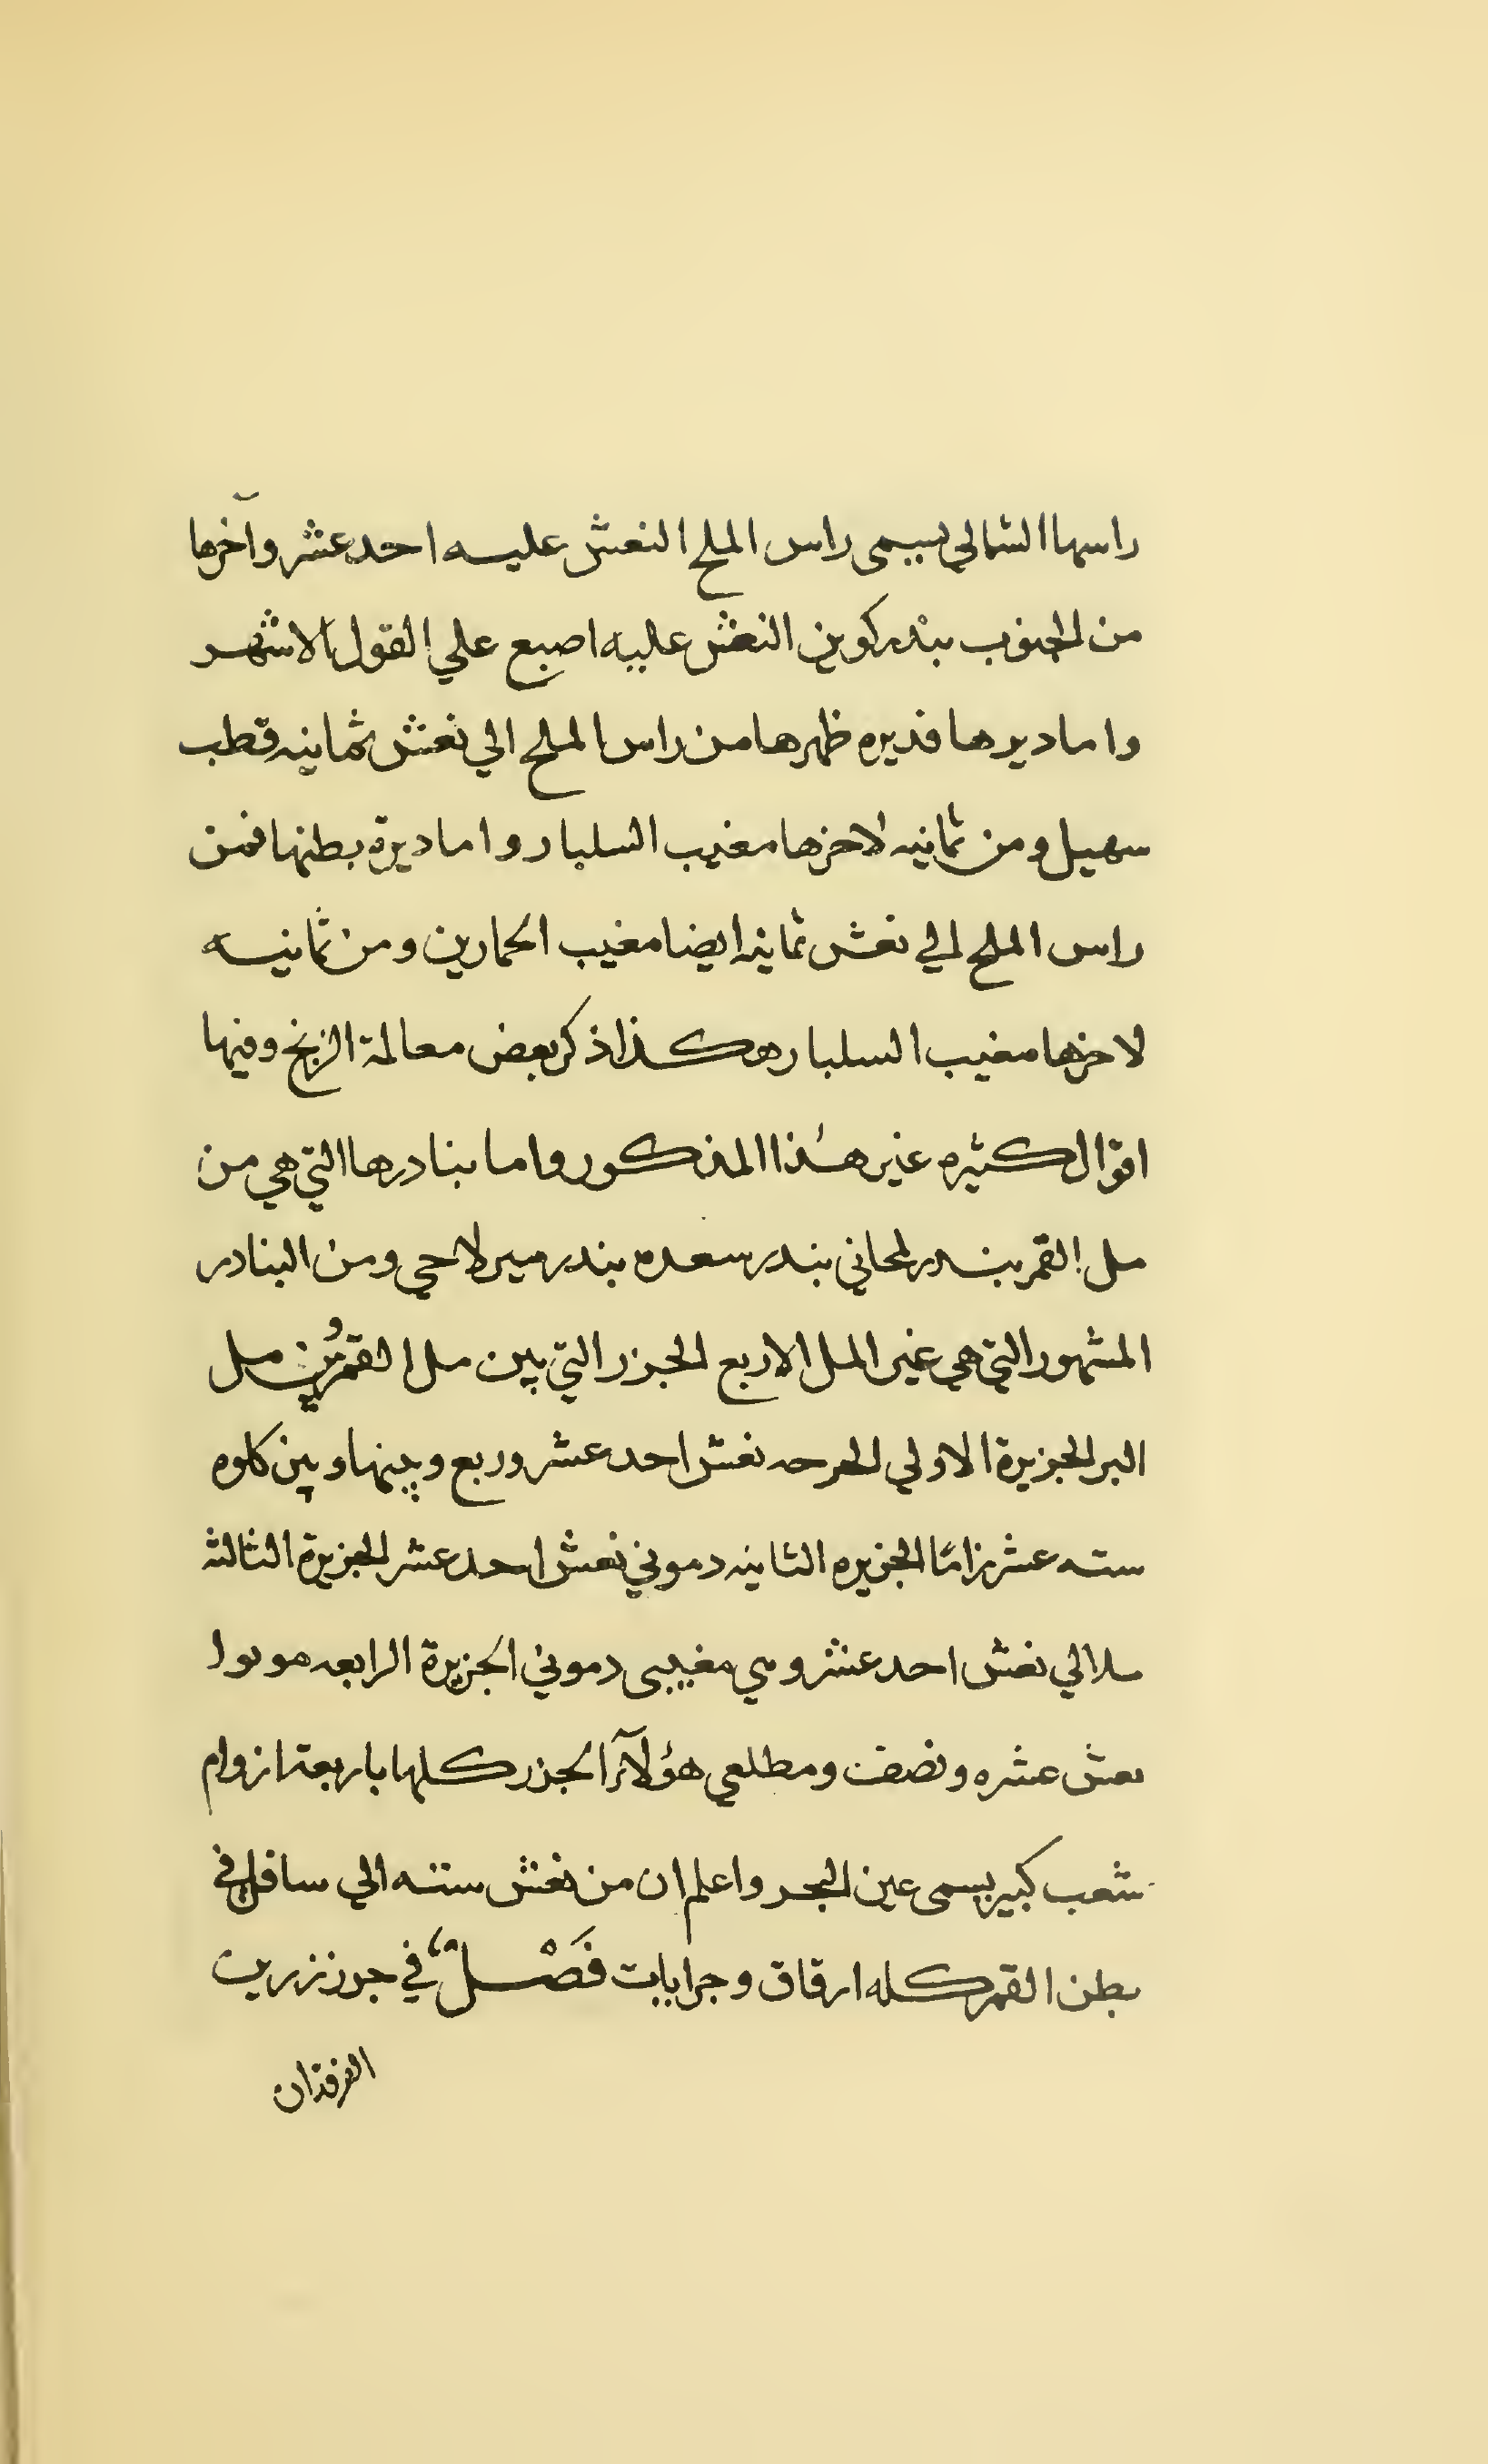 راسها الشمالي يسمى راس الملح النعش عليه احد عشر وآخرها
من الجنوب بندر كوين النعش عليه اصبع علي القول الاشهر
واما ديرها فديره ظهرها من راس الملح الي نعش ثمانيه قطب
سهيل ومن ثمانيه لاخرها مغيب السلبار واما ديرة بطنها فمن
راس الملح الي نعش ثمانيه ايضا مغيب الحمارين ومن ثمانيه
لاخرها مغيب السلبار هكذا ذكر بعض معالمة الزنج وفيها
اقوال كثيره غير هذا المذكور واما بنادرها التي هي من
مل القمر بندر لمحاني بندر سعده بندر ميرلاحي ومن البنادر
المشهور التي هي غير المل الاربع الجزر التي بين مل القمر وبين مل
البر الجزيرة الاولي العرحه نعش احد عشر وربع وبينها وبين كلوه
سته عشر زامًا الجزيره الثانيه دموني نعش احد عشر الجزيرة الثالثه
ملالي نعش احد عشر وهي مغيبى دموني الجزيرة الرابعه موبوا
نعش عشره ونصف ومطلعي هؤلآء الجزر كلها باربعة ازوام
شعب كبير يسمى عين البحر واعلم ان من نعش سته الي سافل في
بطن القمر كله ارقاق وجرابات فَصْلٌ في جوزرين
الفرقدان